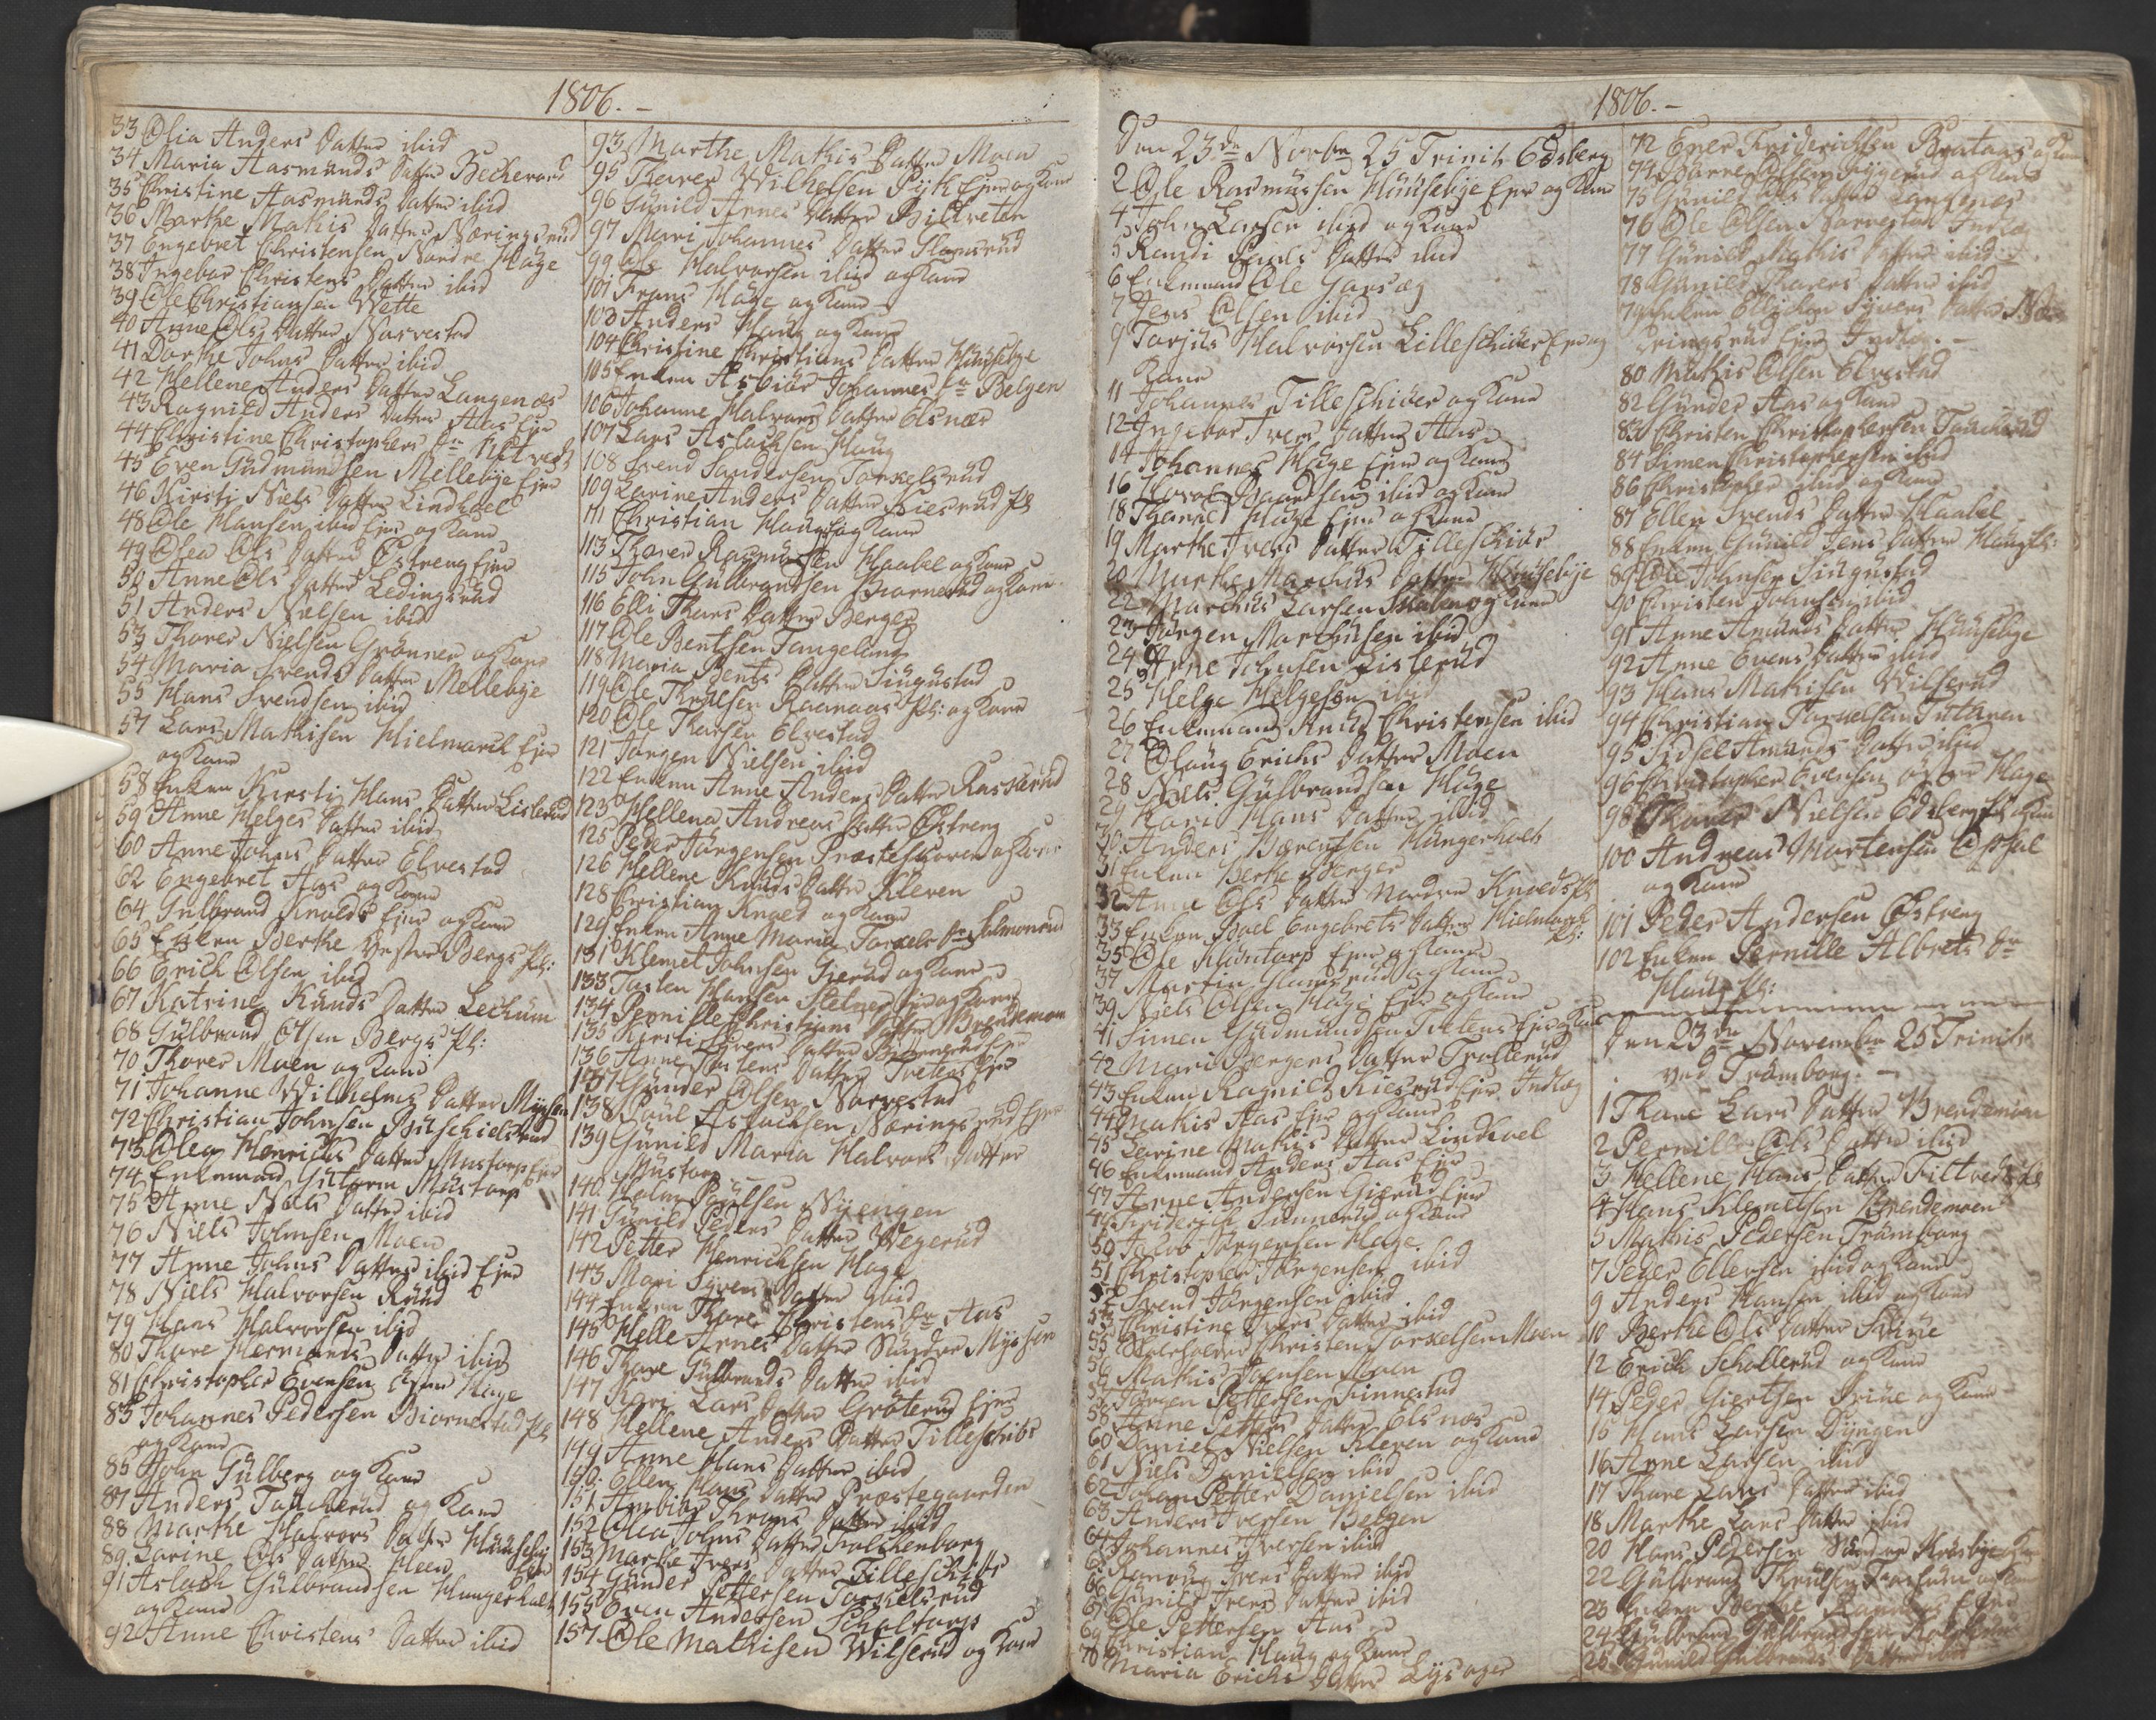 1806.-
33 Olia Anders Datter ibid
34 Maria Aasmunds Datter Beckevard
35 Christine Aasmunds Datter ibid
36 Marthe Mathis Datter Næringsrud
37 Engebret Christensen Nordre Hage
38 Ingebor Christens Datter ibid
39 Ole Christiansen Wette
40 Anne Ols Datter Narvestad
41 Dorthe Johns Datter ibid
42 Hellene Anders Datter Langenæs
43 Ragnild Anders Datter Aas Ejer
44 Christine Christophers Dr
45 Even Gudmundsen Mellebye Ejer
46 Kirsti Niels Datter Lindhoel
48 Ole Hansen ibid Ejer og Kone
49 Olea Ols Datter Østreng Ejer
50 Anne Ols Datter Ledingsrud
51 Anders Nielsen ibid
53 Thorer Nielsen Grønner og Kone
54 Maria Svends Datter Mellebye
55 Hans Svendsen ibid
57 Lars Mathisen Hielmarck Ejer
og Kone
58 Enken Kirsti Hans Datter Lislerud
59 Anne Helges Datter ibid
60 Anne Johns Datter Elvestad
62 Engebret Aas og Kone
64 Gulbrand Knolds Ejer og Kone
65 Enken Berthe Vestre Bergs Pl:
66 Erich Olsen ibid
67 Katrine Knuds Datter Leckum
68 Gulbrand Olsen Bergs Pl:
70 Thorer Moen og Kone
71 Johanne Wilhelms Datter Mysen
72 Christian Johnsen
73 Olea Henrichs Datter Mustorp Ejer
74 Enkemand Guttorm Mustorp
75 Anne Niels Datter ibid
76 Niels Johnsen Moen
77 Anne Johns Datter ibid Ejer
78 Niels Halvorsen Ruud
79 Hans Halvorsen ibid
80 Thore Hermands Datter ibid
81 Christopher Evensen Hage
83 Johannes Pedersen Biørnestad Pl
og Kone
85 John Gulberg og Kone
87 Anders Tanckerud og Kone
88 Marthe Halvors Datter Huuseby
89 Karine Ols Datter Heen
91 Aslach Gulbrandsen Hungerholt
og Kone
92 Anne Christens Datter ibid
93 Marthe Mathis Datter Moen
95 Thorer Wilhelsen Pyth Ejer og Kone
96 Gunild Arnes Datter
97 Mari Johannes Datter Glomsrud
99 Ole Halvorsen ibid og Kone
101 Frans Hage og Kone
103 Anders Haug og Kone
104 Christine Christians Datter Huusebye
105 Enken Asbiør Johannes Dr Belgen
106 Johanne Halvors Datter Elsnær
107 Lars Aslachsen Haug
108 Svend Sandersen Torkelsrud
109 Karine Anders Datter Kiesrud Pl
111 Christian Haug og Kone
113 Thorer Rasmussen Haabel og Kone
115 John Gulbrandsen Biørnerud og Kone
116 Elli Thors Datter Berger
117 Ole Bentsen Tangelang
118 Maria Bents Datter Siugustad
119 Ole Throelsen Raanaas Pl: og Kone
120 Ole Thorsen Elvestad
121 Jørgen Nielsen ibid
122 Enken Anne Anders Datter Raaserud
123 Hellena Andreas Datter Østreng
125 Peder Jørgensen Præsteskoven og Kone
126 Hellene Knuds Datter Kleven
128 Christian Knold og Kone
129 Enken Anne Maria Torkels Dr Salmonrud
131 Klemet Johnsen Gierud og Kone
133 Torsten Hansen Ejer og Kone
134 Pernille Christians Datter Brendemoen
135 Kirsti Syvers Datter
136 Anne Datter Tveten Ejer
137 Gunder Olsen Narvestad
138 Poul Aslachsen Næringsrud Ejer
139 Gunild Maria Halvors Datter
Mustorp
140 Halvor Poulsen Nyengen
141 Gunild Peders Datter Wegerud
142 Petter Henrichsen Hage
143 Mari Syvers Datter ibid
144 Enken Thore Christens Dr Aas
145 Helle Arnes Datter Søndre Mysen
146 Thore Gulbrands Datter ibid
147 Kari Lars Datter Grøterud Ejer
148 Hellene Anders Datter Tilleschiør
149 Anne Hans Datter ibid
150 Ellen Hans Datter Præstegaarden
151 Datter ibid
152 Olea Johns Datter Falchenborg
153 Marthe Ivers Datter Tilleschiør
154 Gunder Pettersen Torkelsrud
155 Even Andersen
157 Ole Mathisen Wilserud og Kone
1806.-
Den 23de Novbr 25 Trinit: Edsberg
2 Ole Rasmussen Huusebye Ejer og Kone
4 John Larsen ibid og Kone
5 Randi Poels Datter ibid
6 Enkemand Ole Garsæg
7 Jens Olsen ibid
9 Torjus Halvorsen Lilleschiør Ejer og
Kone
11 Johannes Tilleschiør og Kone
12 Ingebor Ivers Datter Aas
14 Johannes Hage Ejer og Kone
16 Baardsen ibid og Kone
18 Thorer Hage Ejer og Kone
19 Marthe Ivers Datter Tilleschiør
20 Marthe Marchus Datter Huusebye
22 Marchus Larsen og Kone
23 Jørgen Marchusen ibid
24 Arne Johnsen Lislerud
25 Helge Helgesen ibid
26 Enkemand Knud Christensen ibid
27 Olaug Erichs Datter Moen
28 Niels Gulbrandsen Hage
29 Kari Hans Datter ibid
30 Anders Bærentsen Hungerholt
31 Enken Berthe Berger
32 Anne Ols Datter Nordre Knolds Pl
33 Enken Joel Engebrets Datter Hielmarck
Pl:
35 Ole Huntorp Ejer og Kone
37 Martin Hamsrud og Kone
39 Niels Olsen Hage Ejer og Kone
41 Simen Gudmundsen Tveten Ejer og Kone
42 Mari Børgers Datter Trollerud
43 Enken Ragnild Kiesrud Ejer Indlæg
44 Mathis Aas Ejer og Kone
45 Karine Mathis Datter Lindhoel
46 Enkemand Anders Aas Ejer
47 Arne Andersen Gierud Ejer
49 Friderich og Kone
50 Jacob Jørgensen Hage
51 Christopher Jørgensen ibid
52 Svend Jørgensen ibid
53 Christine Ivers Datter ibid
55 Skoleholder Christen Torkelsen Moen
56 Mathis Joensen Moen
57 Jørgen Pettersen Finnestad
58 Anne Petters Datter Elsnæs
60 Daniel Nielsen Kleven og Kone
61 Niels Danielsen ibid
62 Johan Petter Danielsen ibid
63 Anders Iversen Belgen
64 Johannes Iversen ibid
65 Ranvug Ivers Datter ibid
66 Gunild Ivers Datter ibid
67 Ole Pettersen Aas
69 Christian Haug og Kone
70 Maria Erichs Datter Lysager
1806.-
72 Ener Friderichsen Brataas og Kone
74 Børre Olsen og Kone
75 Gunild Ols Datter Langenæs
76 Ole Olsen Narvestad Indlæg
77 Gunild Mathis Datter ibid
78 Gunild Thorers Datter ibid
79 Enken Ellichen Syvers Datter Næ-
ringsrud Ejer Indlæg.-
80 Mathis Olsen Elvestad
82 Gunder Aas og Kone
83 Christen Christophersen Tanckerud
84 Simen Christophersen ibid
86 Christopher ibid og Kone
87 Ellen Svends Datter Haabel
88 Enken Gunild Jens Datter Haugpl:
89 Ole Johnsen Siugustad
90 Christen Johnsen ibid
91 Anne Amunds Datter Huusebye
92 Anne Evens Datter ibid
93 Hans Mathisen Wilserud
94 Christian Torkelsen
95 Sidsel Amunds Datter ibid
96 Christopher Evensen Hage
98 Thorer Nielsen Edsberg Pl og Kone
100 Andreas Mortensen Opsal
og Kone
101 Peder Andersen Østreng
102 Enken Pernille Albrets Dr
Haug Pl:
Den 23de November 25 Trinit:
ved Trømborg.-
1 Thore Lars Datter Brendemoen
2 Pernille Ols Datter ibid
3 Hellene Hans Datter
4 Hans Klemetsen Brendemoen
5 Mathis Pedersen Trømborg
7 Peder Ellersen ibid og Kone
9 Anders Hansen ibid og Kone
10 Berthe Ols Datter
12 Erich Schollerud og Kone
14 Peder Giertsen og Kone
15 Hans Larsen Dyngen
16 Arne Larsen ibid
17 Thore Lars Datter ibid
18 Marthe Lars Datter ibid
20 Hans Pedersen Søndre Kragbye
22 Gulbrand Throelsen
23 Enken Berthe
24 Gulbrand Gulbrandsen
25 Gunild Gulbrands Datter ibid